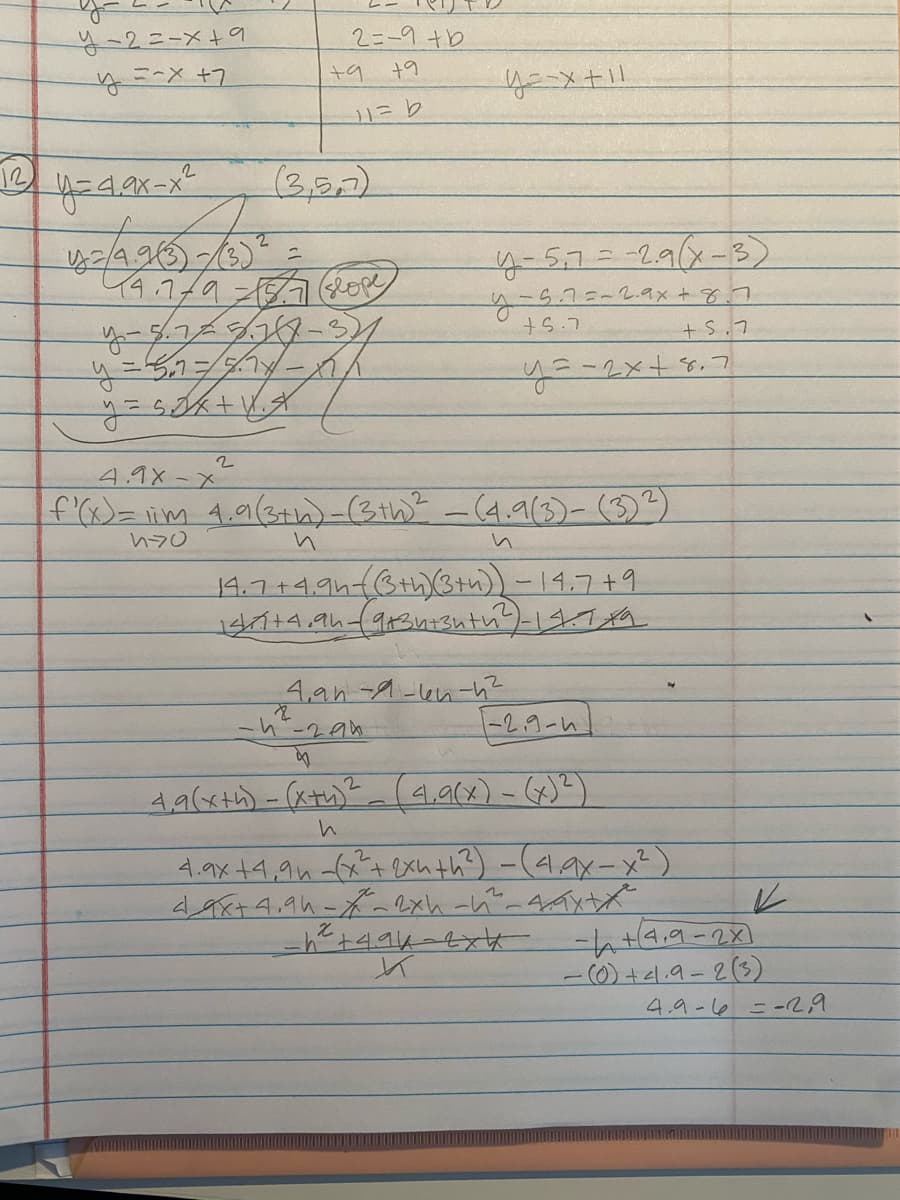 y-2=-x+9
y=-x+7
2=-9+b
+9 +9
11=b
y=-x+11
12 y=4.9x-x² (3,5.7)
y=4.9(3)-(3)² =
14.7-9=5.7 slope
y-5.7=5.7(x-3)
y=-5.7=5.7x-17.1
y=5.7x+11.4
y-5.7=-2.9(x-3)
y-5.7=-2.9x+8.7
+5.7 +5.7
y=-2x+8.7
4.9x-x²
f'(x)=lim 4.9(3+h)-(3+h)² -(4.9(3)-(3)²)
h→0 h h
14.7+4.9h-((3+h)(3+h))-14.7+9
14.7+4.9h-(9+3h+3h+h²)-14.7+9
4.9h-9-6h-h²
-h²-2.9h -2.9-h
h
4.9(x+h)-(x+h)²-(4.9(x)-(x)²)
h
4.9x+4.9h-(x²+2xh+h²)-(4.9x-x²)
4.9x+4.9h-x²-2xh-h²-4.9x+x²
-h²+4.9h-2xh -h+4.9-2x
h
-(0)+4.9-2(3)
4.9-6 =-2.9